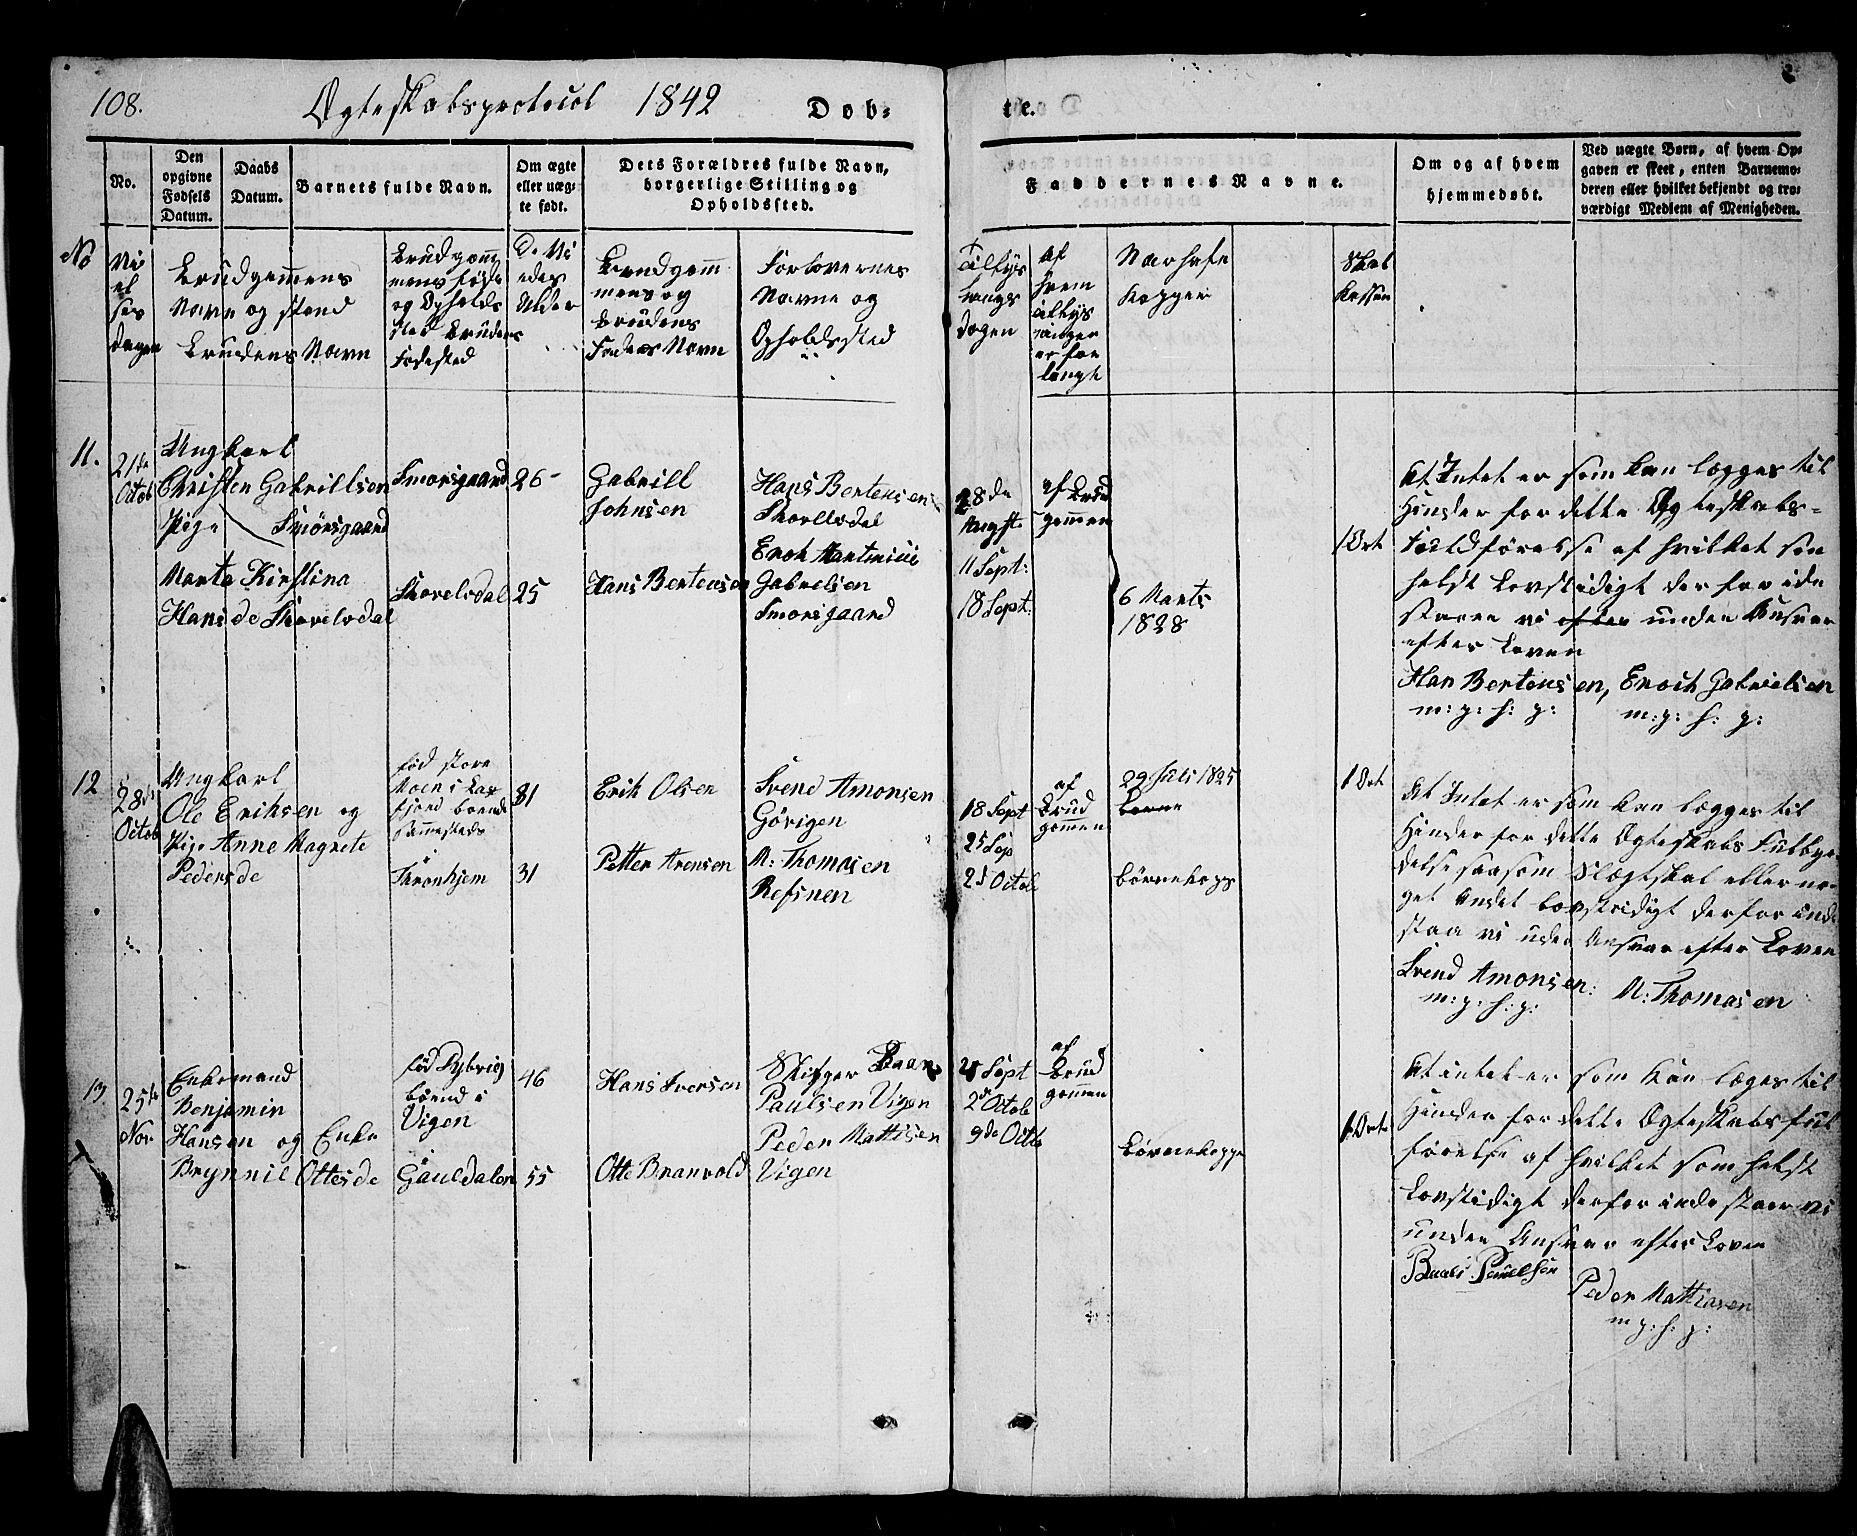 108.
Ægteskabsprotocol 1842
Dob=
te.
No.
Den
opgivne
Fødsels
Datum.
Daabs
Datum.
Barnets fulde Navn.
Om ægte
eller uæg-
te født.
Dets Forældres fulde Navn,
borgerlige Stilling og
Opholdssted.
Faddernes Navne.
Om og af hvem
hjemmedøbt.
Ved uægte Børn, af hvem Op-
gaven er skeet, enten Barnemo-
deren eller hvilket bekjendt og tro-
værdigt Medlem af Menigheden.
No
Vi
el
ses
dagen
Brudgommens
Navn og stand
Brudens Navn
Brudgom
mens føde
og Opholds
sted Brudens
Fødested
De Vi
edes
Alder
Brudgom
mens og
Brudens
Faders Navn
Forlovernes
Navne og
Opholdssted
Tillys
nings
dagen
Af
hvem
tillys
ninger
er for
langt
Nar hafte
Kopper
Skat
Kassen
11.
21de
Octob
Ungkarl
Christen Gabrillsen
Smørsgaard
Pige
Marta Kirstina
Hansde Skorelvdal
Smorsgaard
Skorelvdal
26
25
Gabrill
Johnsen
Hans Bertensen
Hans Bertensen
Skorelvdal
Enok Martinius
Gabrielsen
Smorsgaard
28de
Augst
11 Sept:
18 Sept.
af Brud
gommen
6 Marts
1828
1 Ort
At Intet er som kan lægges til
Hinder for dette Ægteskabs-
Fuldførelse af hvilket som
helst Lovstridigt der for inde
staae vi efter under Ansvar
efter Loven
Han Bertensen, Enoch Gabrielsen
m: p: f: p: m: p: f: p:
12
28de
Octob
Ungkarl
Ole Eriksen og
Pige Anne Magrete
Pedersde
fød store
Moen i
fjord boende
sammesteds
Thronhjem
31
31
Erik Olsen
Petter Arensen
Svend Amonsen
Görigen
M: Thomasen
Refsnen
18 Sept
25 Sep
2d Octob
af
Brud
gommen
29 Juli 1825
børnekops
1 Ort
At Intet er som kan lægges til
Hinder for dette Ægteskabs Fuldbyr
delse saasom Slægtskab eller no-
get Andet lovstridigt derfor inde
staa vi under Ansvar efter Loven
Svend Amonsen: M: Thomasen
m: p: f: p:
13
25de
Nov
Enkemand
Benjamin
Hansen og Enke
Brynnil Ottesde
fød
boend i
Vigen
Gauldalen
46
55
Hans Iversen
Otte Branvold
Skifger Baar
Paulsen Vigen
Peder Mattisen
Vigen
25 Sept
2d Octob
9de Octb
af
Brud
gommen
børnekopper
1 Ort
At intet er som kan læges til
Hinder for dette Ægteskabs ful
førelse af hvilket som helst
Lovstidigt derfor inde staar vi
under Ansvar efter Loven
Baar Poulsen
Peder Mattiasen
m: p: f: p: